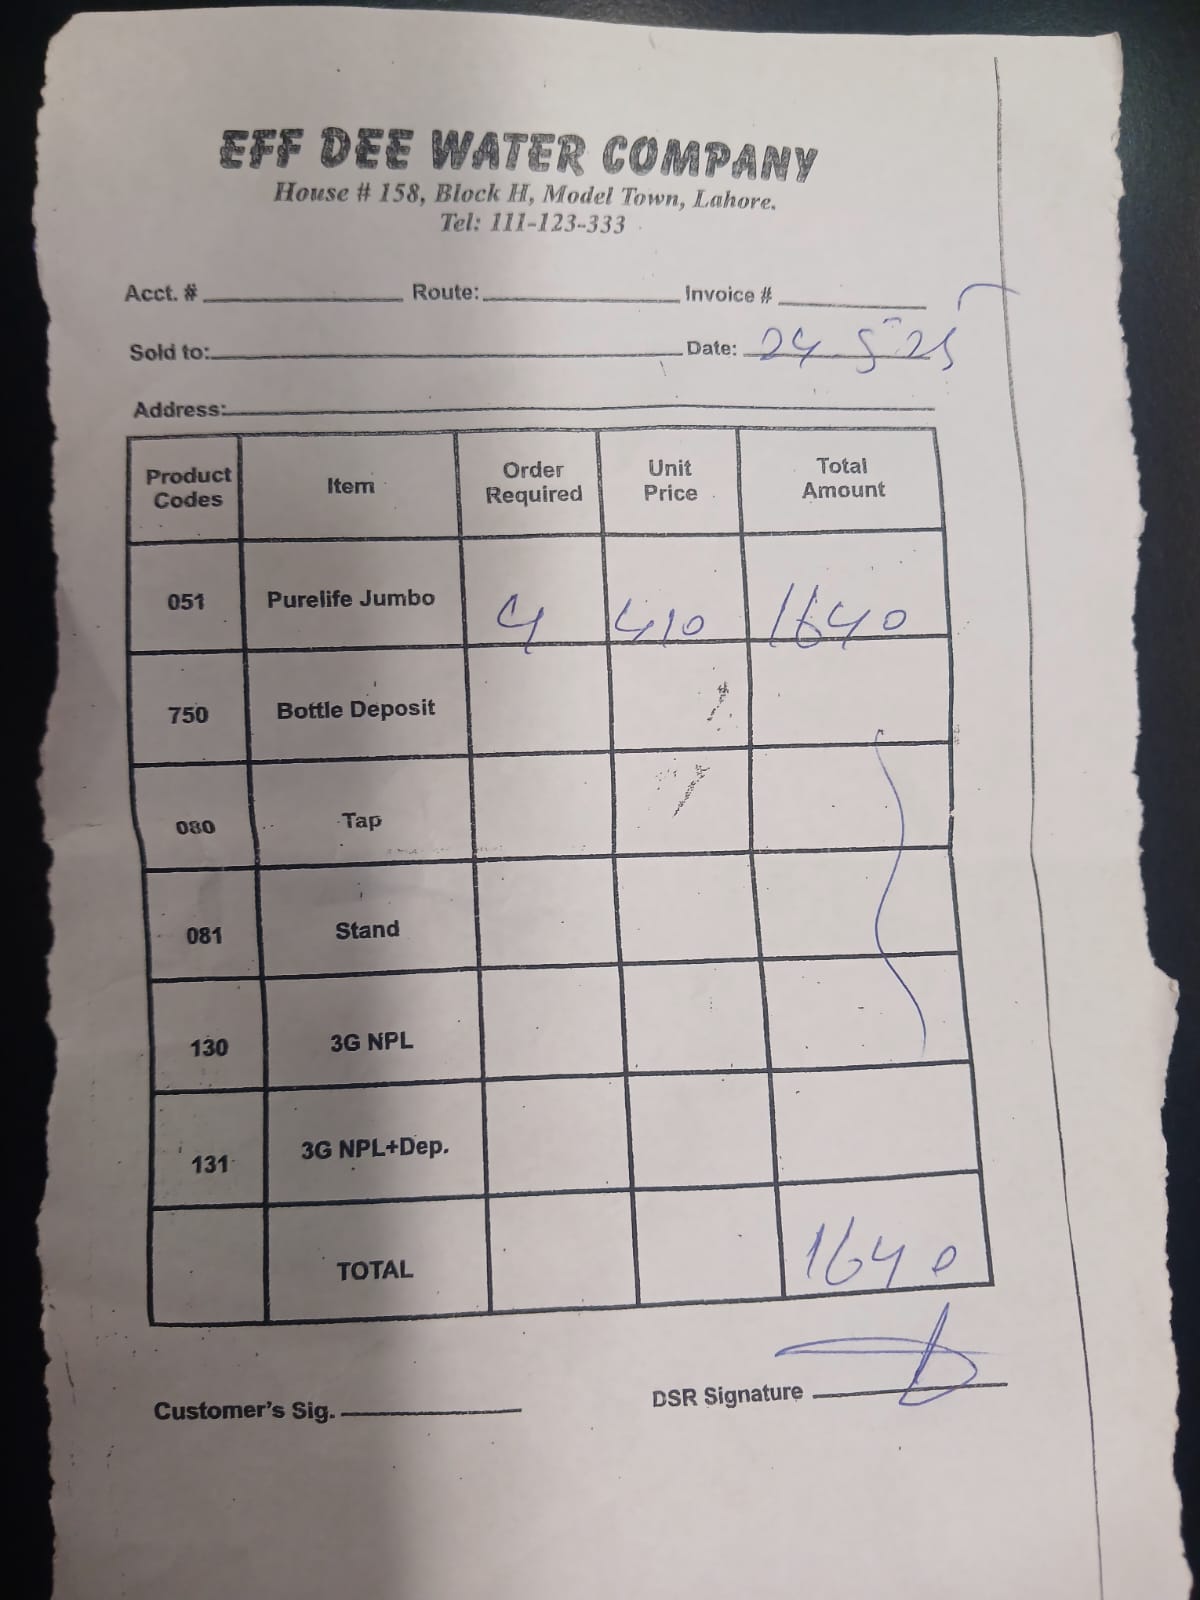 EFF DEE WATER COMPANY
House # 158, Block H, Model Town, Lahore.
Tel: 111-123-333
Acct. # Route: Invoice #
Sold to: Date: 24 5 25
Address:
Product Codes Item Order Required Unit Price Total Amount
051 Purelife Jumbo 4 410 1640
750 Bottle Deposit
080 Tap
081 Stand
130 3G NPL
131 3G NPL+Dep.
TOTAL 1640
Customer's Sig. DSR Signature